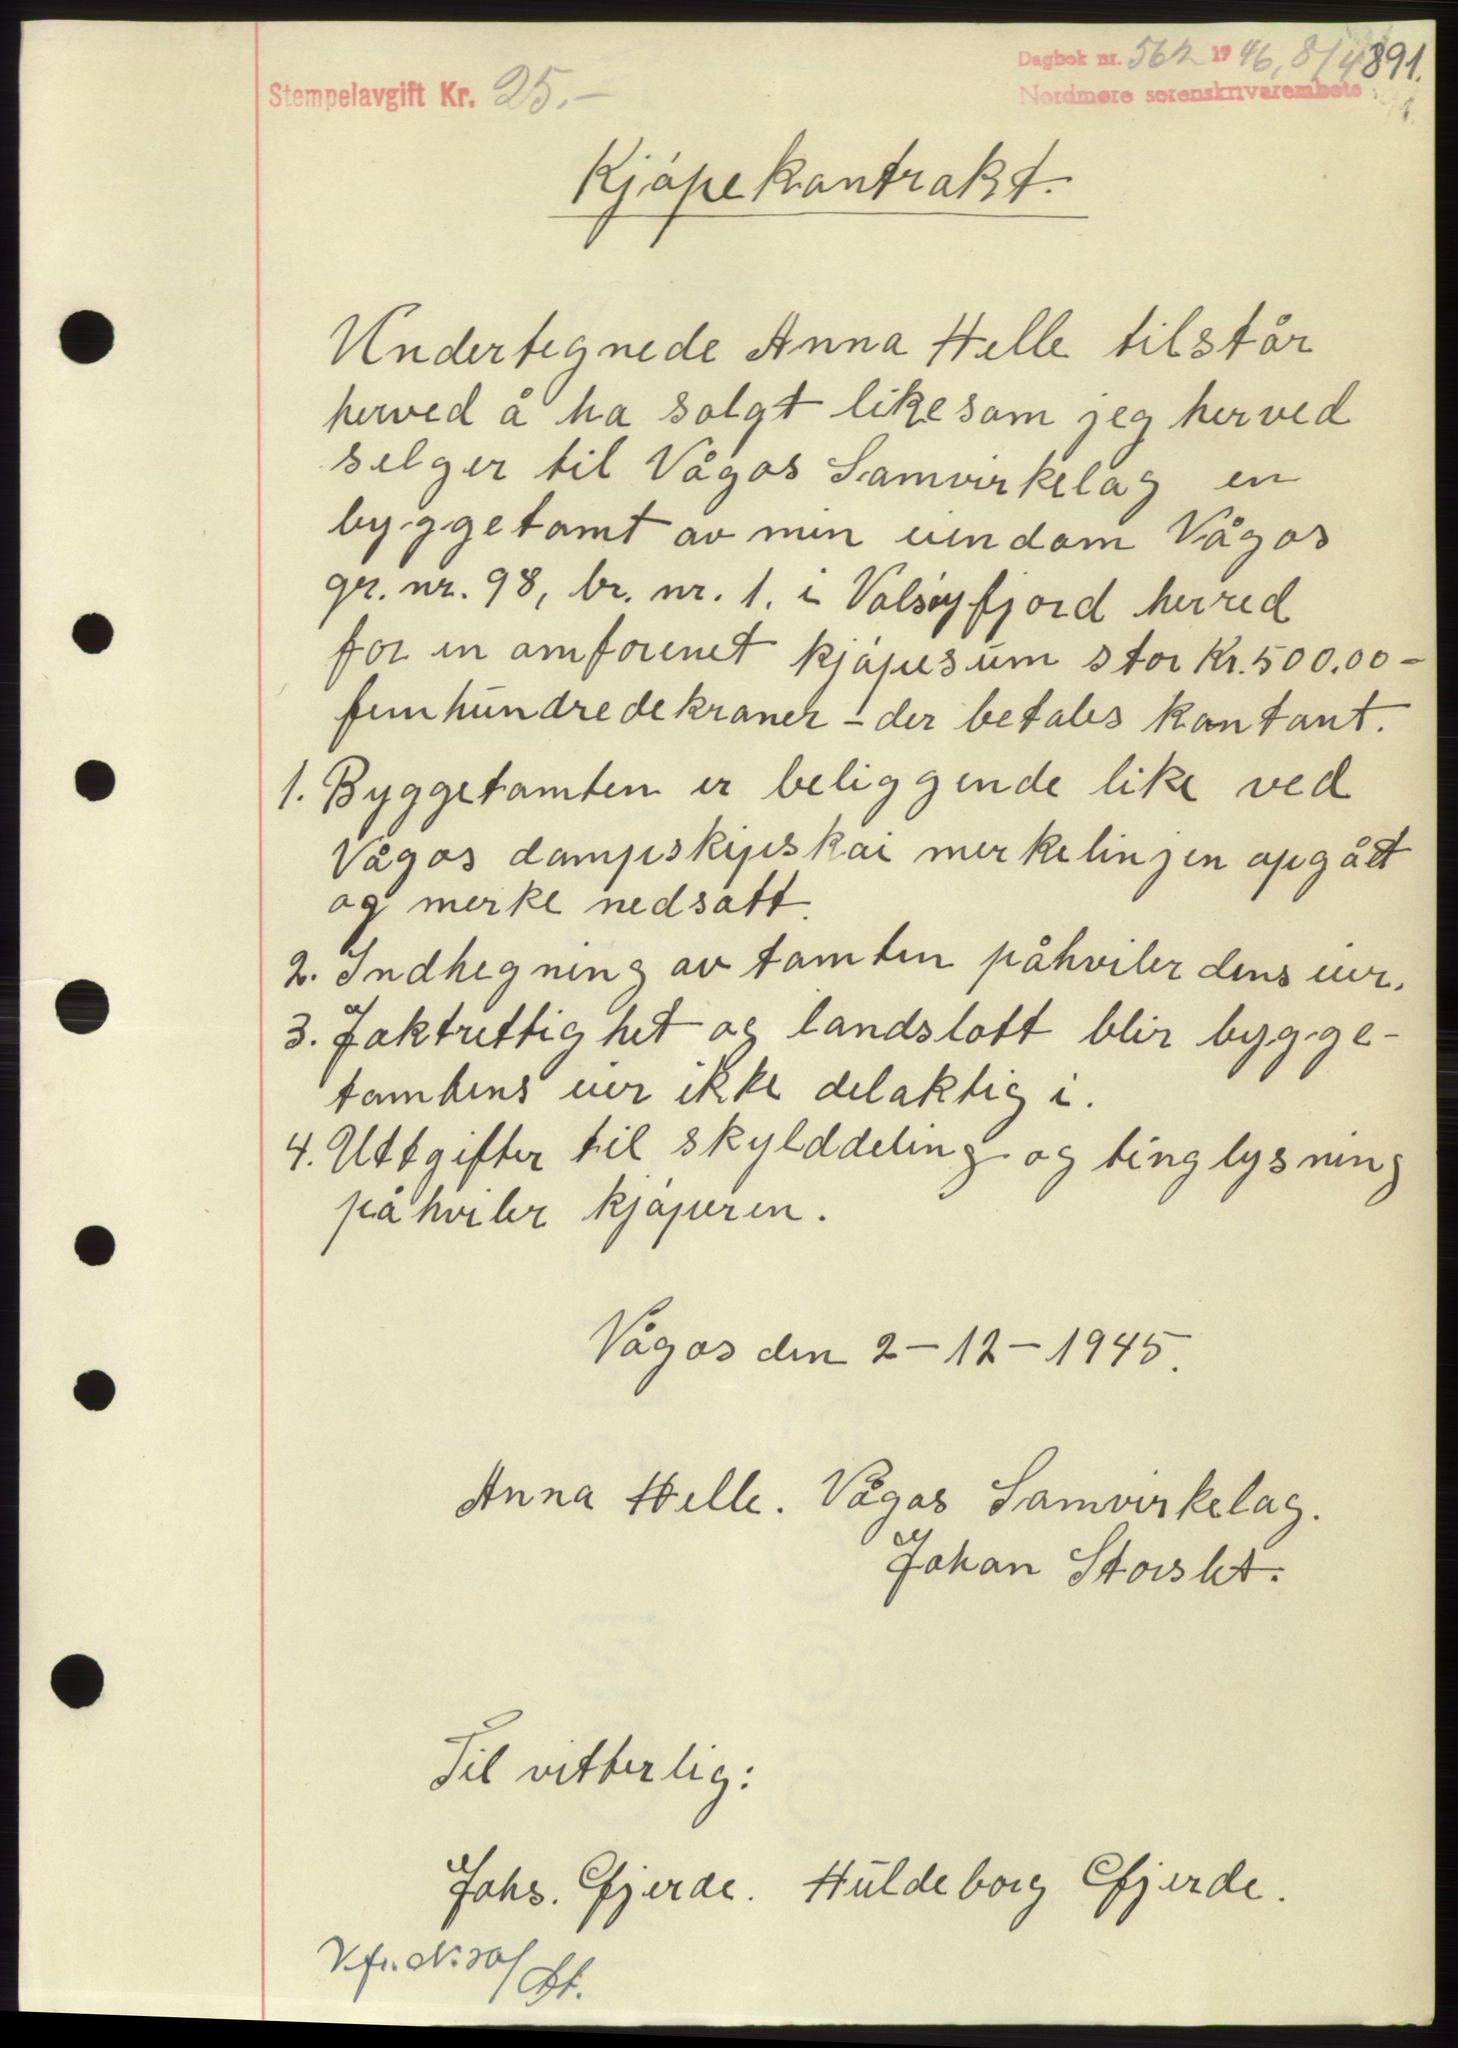 Dagbok nr. 562 1946, 8/4 891.
Stempelavgift Kr. 25.-
Nordmøre sorenskrivarembete
Kjøpekontrakt.
Undertegnede Anna Helle tilstår
herved å ha solgt likesom jeg herved
selger til Vågos Samvirkelag en
byggetomt av min eiendom Vågos
gr. nr. 98, br. nr. 1. i Valsøyfjord herred
for en omforenet kjøpesum stor Kr. 500.00 -
femhundredekroner - der betales kontant.
1. Byggetomten er beliggende like ved
Vågos dampskipskai merkelinjen opgått
og merke nedsatt.
2. Indhegning av tomten påhviler dens eier.
3. Jaktrettighet og landslott blir bygge-
tomtens eier ikke delaktig i.
4. Uttgifter til skylddeling og tinglysning
påhviler kjøperen.
Vågos den 2-12-1945.
Anna Helle. Vågos Samvirkelag.
Johan Storslet.
Til vitterlig:
Johs. Gjerde. Huldeborg Gjerde.